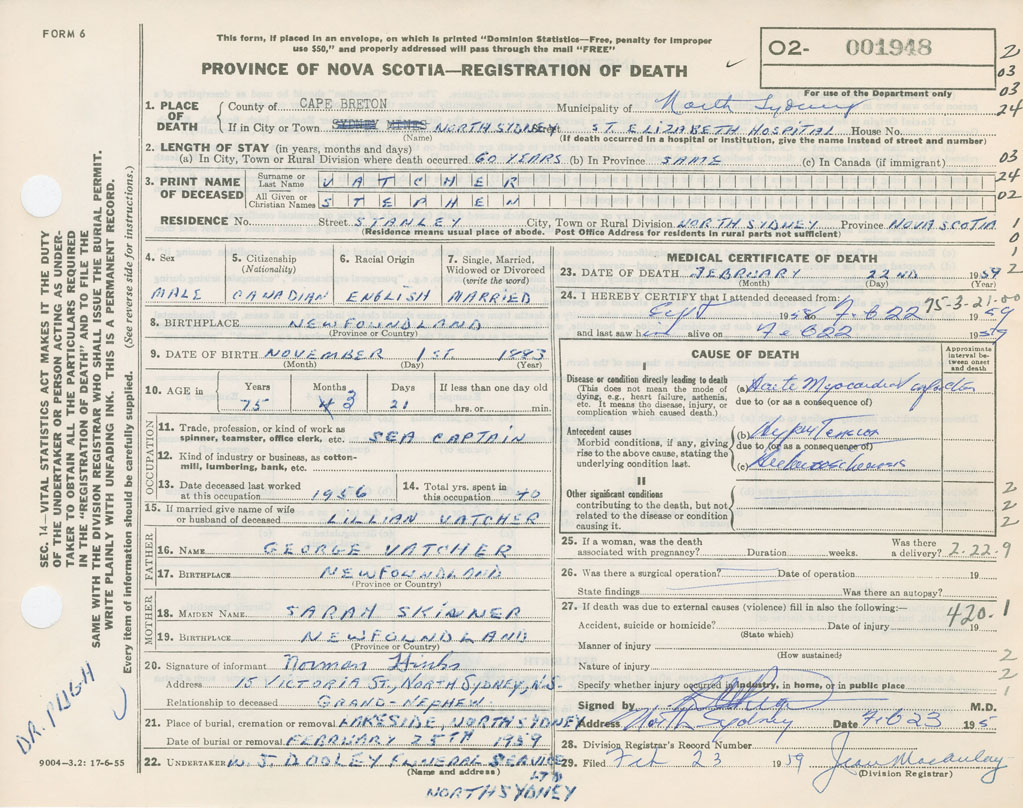 FORM 6
This form, if placed in an envelope, on which is printed "Dominion Statistics—Free, penalty for improper
use $50," and properly addressed will pass through the mail "FREE"
PROVINCE OF NOVA SCOTIA—REGISTRATION OF DEATH
O2- 001948
For use of the Department only
2
03
03
24
03
24
02
1
0
1
2
1. PLACE OF DEATH
County of CAPE BRETON Municipality of North Sydney
If in City or Town SYDNEY MINES NORTH SYDNEY Street ST. ELIZABETH HOSPITAL House No.
(Name) (If death occurred in a hospital or institution, give the name instead of street and number)
2. LENGTH OF STAY (in years, months and days)
(a) In City, Town or Rural Division where death occurred 60 YEARS (b) In Province SAME (c) In Canada (if immigrant)
3. PRINT NAME OF DECEASED
Surname or Last Name VATCHER
All Given or Christian Names STEPHEN
RESIDENCE No. Street STANLEY City, Town or Rural Division NORTH SYDNEY Province NOVA SCOTIA
(Residence means usual place of abode. Post Office Address for residents in rural parts not sufficient)
4. Sex
MALE
5. Citizenship
(Nationality)
CANADIAN
6. Racial Origin
ENGLISH
7. Single, Married,
Widowed or Divorced
(write the word)
MARRIED
8. BIRTHPLACE NEWFOUNDLAND
(Province or Country)
9. DATE OF BIRTH NOVEMBER 1ST. 1883
(Month) (Day) (Year)
10. AGE in Years Months Days If less than one day old
75 3 21 hrs. or min.
OCCUPATION
11. Trade, profession, or kind of work as
spinner, teamster, office clerk, etc. SEA CAPTAIN
12. Kind of industry or business, as cotton-
mill, lumbering, bank, etc.
13. Date deceased last worked
at this occupation 1956
14. Total yrs. spent in
this occupation 40
15. If married give name of wife
or husband of deceased LILLIAN VATCHER
FATHER
16. NAME GEORGE VATCHER
17. BIRTHPLACE NEWFOUNDLAND
(Province or Country)
MOTHER
18. MAIDEN NAME SARAH SKINNER
19. BIRTHPLACE NEWFOUNDLAND
(Province or Country)
20. Signature of informant Norman
Address 15 VICTORIA ST., NORTH SYDNEY, N.S.
Relationship to deceased GRAND-NEPHEW
21. Place of burial, cremation or removal LAKESIDE, NORTH SYDNEY
Date of burial or removal FEBRUARY 25TH 1959
22. UNDERTAKER W. J. DOOLEY FUNERAL SERVICE LTD
(Name and address)
NORTH SYDNEY
MEDICAL CERTIFICATE OF DEATH
23. DATE OF DEATH FEBRUARY 22ND 1959
(Month) (Day) (Year)
24. I HEREBY CERTIFY that I attended deceased from:
Sept 1958 to Feb 22 1959
75-3-21-00
and last saw him alive on Feb 22 1959
CAUSE OF DEATH
Approximate
interval be-
tween onset
and death
I
Disease or condition directly leading to death
(This does not mean the mode of
dying, e.g., heart failure, asthenia,
etc. It means the disease, injury, or
complication which caused death.)
(a) Acute Myocardial infarction
due to (or as a consequence of)
Antecedent causes
Morbid conditions, if any, giving
rise to the above cause, stating the
underlying condition last.
(b) Hypertension
due to (or as a consequence of)
(c) Arteriosclerosis
II
Other significant conditions
contributing to the death, but not
related to the disease or condition
causing it.
2
2
2
25. If a woman, was the death
associated with pregnancy? Duration weeks. Was there
a delivery? 2-22-9
26. Was there a surgical operation? Date of operation 19
State findings Was there an autopsy?
27. If death was due to external causes (violence) fill in also the following:—
420-1
Accident, suicide or homicide? Date of injury 19
(State which)
Manner of injury
(How sustained)
Nature of injury
Specify whether injury occurred in industry, in home, or in public place
2
2
1
Signed by M.D.
Address North Sydney Date Feb 23 195
28. Division Registrar's Record Number
29. Filed Feb 23 1959 Jean Macaulay
(Division Registrar)
SEC. 14—VITAL STATISTICS ACT MAKES IT THE DUTY
OF THE UNDERTAKER OR PERSON ACTING AS UNDER-
TAKER TO OBTAIN ALL THE PARTICULARS REQUIRED
IN THE "REGISTRATION OF DEATH" AND TO FILE THE
SAME WITH THE DIVISION REGISTRAR WHO SHALL ISSUE THE BURIAL PERMIT.
WRITE PLAINLY WITH UNFADING INK. THIS IS A PERMANENT RECORD.
Every item of information should be carefully supplied. (See reverse side for instructions.)
DR. PUGH
9004—3.2: 17-6-55